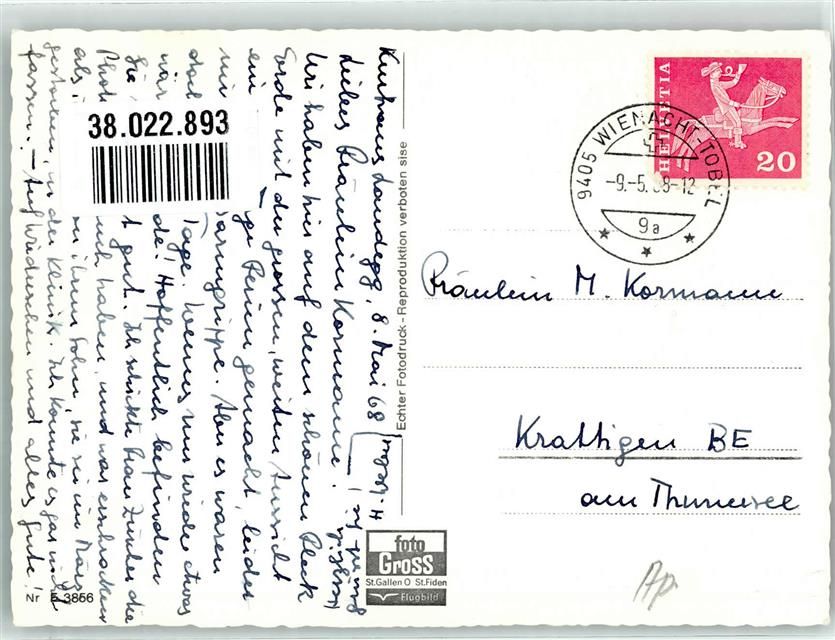 Kurhaus Landegg, 8. Mai 68
Liebes Fräulein Kormann!
Wir haben hier auf dem schönen Fleck
Erde mit der grossen, weiten Aussicht
ein
ge Ferien gemacht, leider
mit
armgrippe. Aber es waren
doch
Tage. Wenns nun wieder etwas
wär
de! Hoffentlich befinden
Sie
t gut. Ich schickte Frau Zürcher die
Phot
ich haben, und war erschrocken
als
von ihrem Sohn, sie sei im März
gestorben, in der Klinik. Ich konnte es gar nicht
fassen. – Auf Wiedersehen und alles Gute!
38.022.893
Echter Fotodruck - Reproduktion verboten sise
foto
Gross
St.Gallen O St.Fiden
Flugbild
Nr E 3856
HELVETIA
20
9405 WIENACHT-TOBEL
-9.-5.68-12
9a
Fräulein M. Kormann
Krattigen BE
am Thunersee